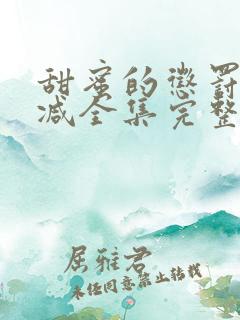 甜蜜的惩罚
减全集完整
屈雅君
未经同意禁止转载